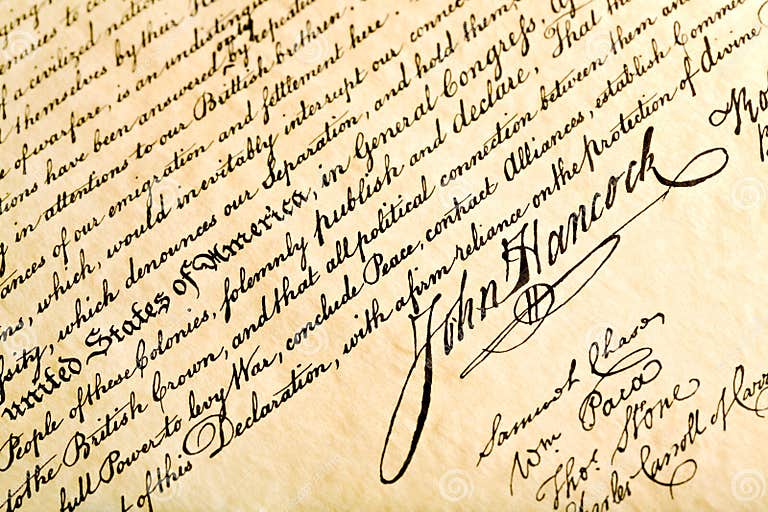 ging
enaries to com
of a civilized nation
themselves by their Ha
of warfare, is an undistinguish
tions have been answered only by repeated
in attentions to our Brittish brethren.
ances of our emigration and settlement here.
ns, which, would inevitably interrupt our connec
sity, which denounces our Separation, and hold them,
united States of America, in General Congress, A
People of these Colonies, solemnly publish and declare, That th
to the British Crown, and that all political connection between them an
full Power to levy War, conclude Peace, contract Alliances, establish Comme
of this Declaration, with a firm reliance on the protection of divine
John Hancock
Samuel Chase
Wm. Paca
Thos. Stone
Charles Carroll of Carr